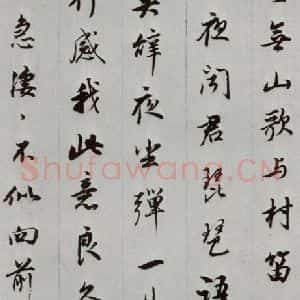 無山歌与村笛
夜聞君琵琶語
莫辭夜坐彈一
行感我此意良久
急淒〻不似向前
Shufawang.CN